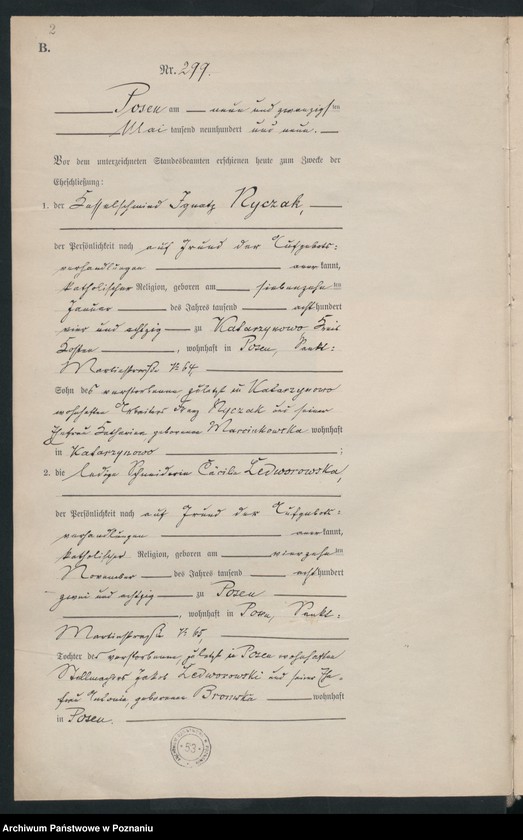 2
B.
Nr. 299.
Posen am neun und zwanzigsten
Mai tausend neunhundert und neun.
Vor dem unterzeichneten Standesbeamten erschienen heute zum Zwecke der
Eheschließung:
1. der Kesselschmied Ignatz Ryczak,
der Persönlichkeit nach auf Grund der Aufgebots=
verhandlungen anerkannt,
katholischer Religion, geboren am siebenzehnten
Januar des Jahres tausend achthundert
vier und achtzig zu Katarzynowo, Kreis
Kosten, wohnhaft in Posen, Sankt=
Martinstraße № 64,
Sohn des verstorbenen, zuletzt in Katarzynowo
wohnhaften Arbeiters Ryczak und seiner
Ehefrau Katharina geborenen Marcinkowska wohnhaft
in Katarzynowo;
2. die ledige Schneiderin Cäcilie Ledworowska,
der Persönlichkeit nach auf Grund der Aufgebots=
verhandlungen anerkannt,
katholischer Religion, geboren am vierzehnten
November des Jahres tausend achthundert
zwei und achtzig zu Posen
, wohnhaft in Posen, Sankt=
Martinstraße № 65,
Tochter des verstorbenen, zuletzt in Posen wohnhaften
Stellmachers Jakob Ledworowski und seiner Ehe=
frau Antonie, geborenen wohnhaft
in Posen.
53
Archiwum Państwowe w Poznaniu